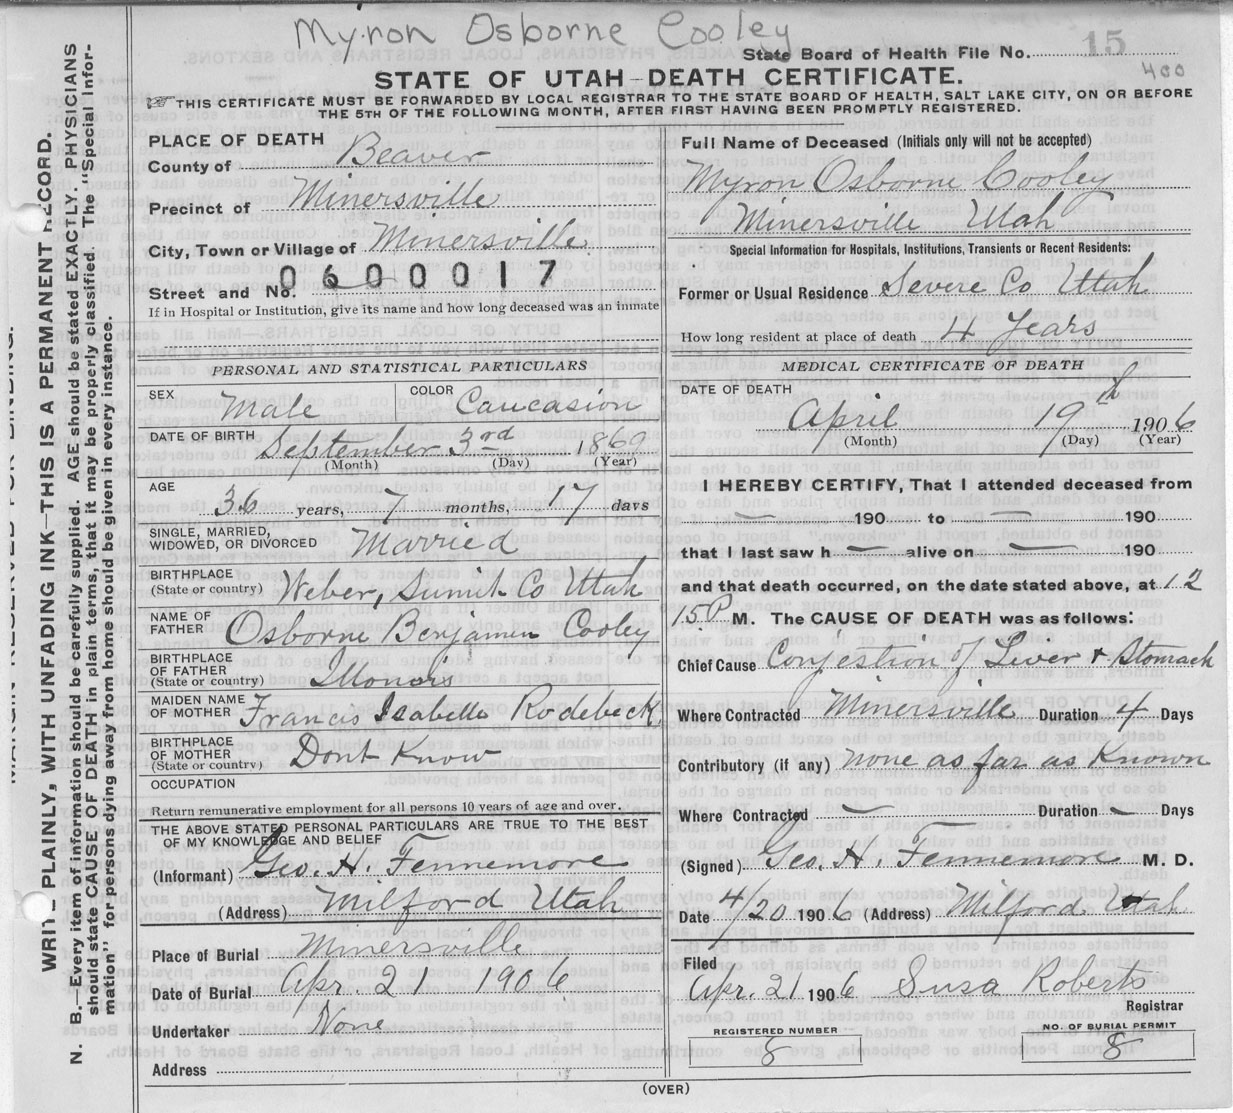 Myron Osborne Cooley
State Board of Health File No. 15
400
STATE OF UTAH—DEATH CERTIFICATE.
☞ THIS CERTIFICATE MUST BE FORWARDED BY LOCAL REGISTRAR TO THE STATE BOARD OF HEALTH, SALT LAKE CITY, ON OR BEFORE
THE 5TH OF THE FOLLOWING MONTH, AFTER FIRST HAVING BEEN PROMPTLY REGISTERED.
PLACE OF DEATH
County of Beaver
Precinct of Minersville
City, Town or Village of Minersville
0600017
Street and No.
If in Hospital or Institution, give its name and how long deceased was an inmate
Full Name of Deceased (Initials only will not be accepted)
Myron Osborne Cooley
Minersville Utah
Special Information for Hospitals, Institutions, Transients or Recent Residents:
Former or Usual Residence Severe Co Utah
How long resident at place of death 4 Years
PERSONAL AND STATISTICAL PARTICULARS
SEX Male
COLOR Caucasion
DATE OF BIRTH September 3rd 1869
(Month) (Day) (Year)
AGE
36 years, 7 months, 17 days
SINGLE, MARRIED,
WIDOWED, OR DIVORCED Married
BIRTHPLACE
(State or country) Weber, Sumit Co Utah
NAME OF
FATHER Osborne Benjamin Cooley
BIRTHPLACE
OF FATHER
(State or country) Illonois
MAIDEN NAME
OF MOTHER Francis Isabelle Rodebeck
BIRTHPLACE
OF MOTHER
(State or country) Dont Know
OCCUPATION
Return remunerative employment for all persons 10 years of age and over.
THE ABOVE STATED PERSONAL PARTICULARS ARE TRUE TO THE BEST
OF MY KNOWLEDGE AND BELIEF
(Informant) Geo. H. Fennemore
(Address) Milford Utah
Place of Burial Minersville
Date of Burial Apr. 21 1906
Undertaker None
Address
MEDICAL CERTIFICATE OF DEATH
DATE OF DEATH
April 19th 1906
(Month) (Day) (Year)
I HEREBY CERTIFY, That I attended deceased from
— 190 to — 190
that I last saw h — alive on — 190
and that death occurred, on the date stated above, at 12
15 P M. The CAUSE OF DEATH was as follows:
Chief Cause Conjestion of Liver & Stomach
Where Contracted Minersville Duration 4 Days
Contributory (if any) none as far as Known
Where Contracted — Duration — Days
(Signed) Geo. H. Fennemore M. D.
Date 4/20 1906 (Address) Milford Utah
Filed
Apr. 21 1906 Susa Roberts
Registrar
REGISTERED NUMBER
8
NO. OF BURIAL PERMIT
8
(OVER)
MARGIN RESERVED FOR BINDING.
WRITE PLAINLY, WITH UNFADING INK—THIS IS A PERMANENT RECORD.
N. B.—Every item of information should be carefully supplied. AGE should be stated EXACTLY. PHYSICIANS
should state CAUSE OF DEATH in plain terms, that it may be properly classified. The "Special Infor-
mation" for persons dying away from home should be given in every instance.